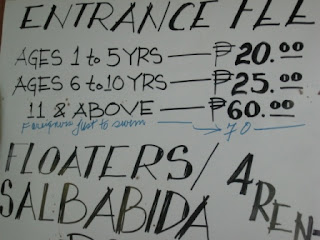 ENTRANCE FEE
AGES 1 to 5 YRS — ₱20.00
AGES 6 to 10 YRS — ₱25.00
11 & ABOVE — ₱60.00
just to swim → 70 —
FLOATERS/
SALBABIDA
4 REN-